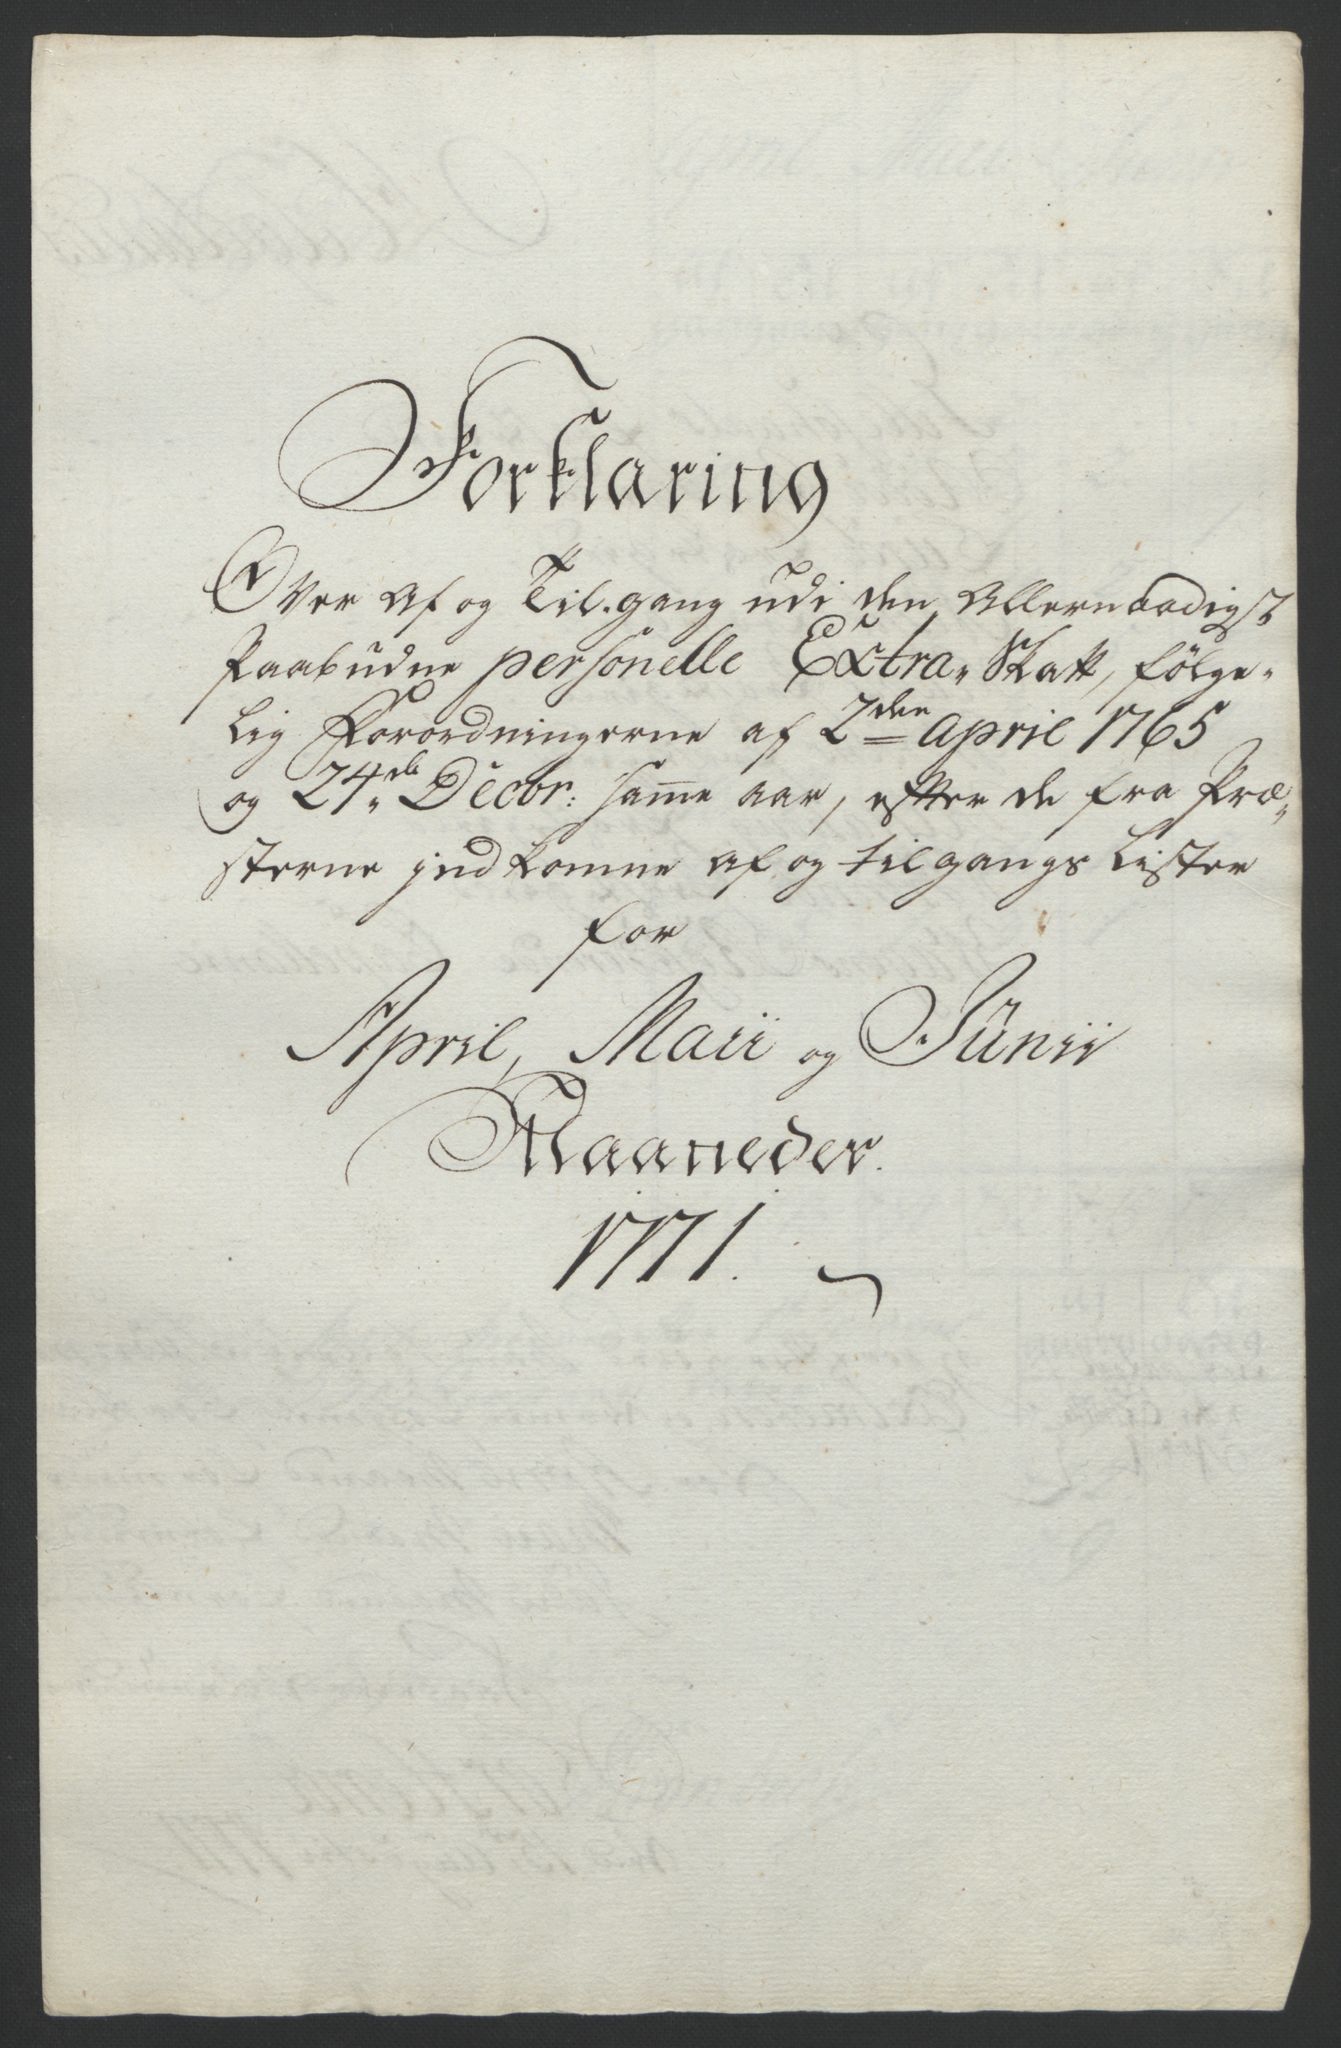 Forklaring
Over Af og Til-gang udi den Allernaadigst
Paabudne personelle Extra-Skatt, følge-
lig Forordningerne af 2den April 1765
og 24de Decbr: samme aar, efter de fra Præ-
sterne indkomne af og tilgangs Lister
for
April, Maii og Junii
Maaneder.
1771.